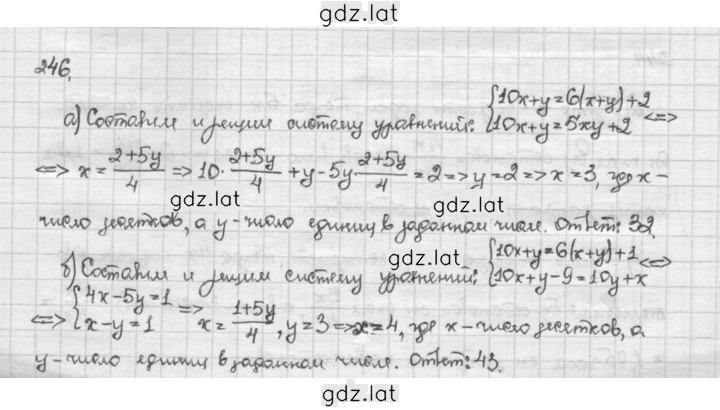 gdz.lat
246.
а) Составим и решим систему уравнений: {10x+y=6(x+y)+2
{10x+y=5xy+2 <=>
<=> x = (2+5y)/4 => 10·(2+5y)/4 + y-5y·(2+5y)/4 = 2 => y=2 => x=3, где x-
gdz.lat
число десятков, а y-число единиц в заданном числе. Ответ: 32.
б) Составим и решим систему уравнений: {10x+y=6(x+y)+1
{10x+y-9=10y+x <=>
<=> {4x-5y=1
{x-y=1 => x=(1+5y)/4, y=3 => x=4, где x-число десятков, а
y-число единиц в заданном числе. Ответ: 43.
gdz.lat